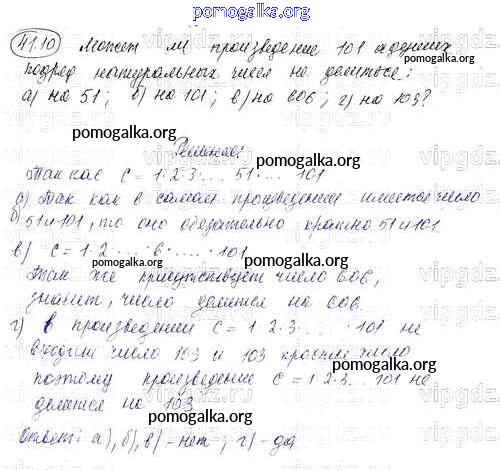 pomogalka.org
41.10 Может ли произведение 101 идущих
подряд натуральных чисел не делиться:
а) на 51; б) на 101; в) на 606; г) на 103?
pomogalka.org
Решение:
Так как C = 1·2·3·... 51·... 101
pomogalka.org
а) Так как в самом произведении имеется число
б) 51 и 101, то оно обязательно кратно 51 и 101.
pomogalka.org
в) C = 1·2·...·6·...·101
pomogalka.org
Так же присутствует число 606,
значит, число делится на 606.
pomogalka.org
г) в произведении C = 1·2·3·...·101 не
входит число 103 и 103 кратное число
pomogalka.org
поэтому произведение C = 1·2·3... 101 не
делится на 103
pomogalka.org
Ответ: а), б), в) - нет; г) - да
pomogalka.org